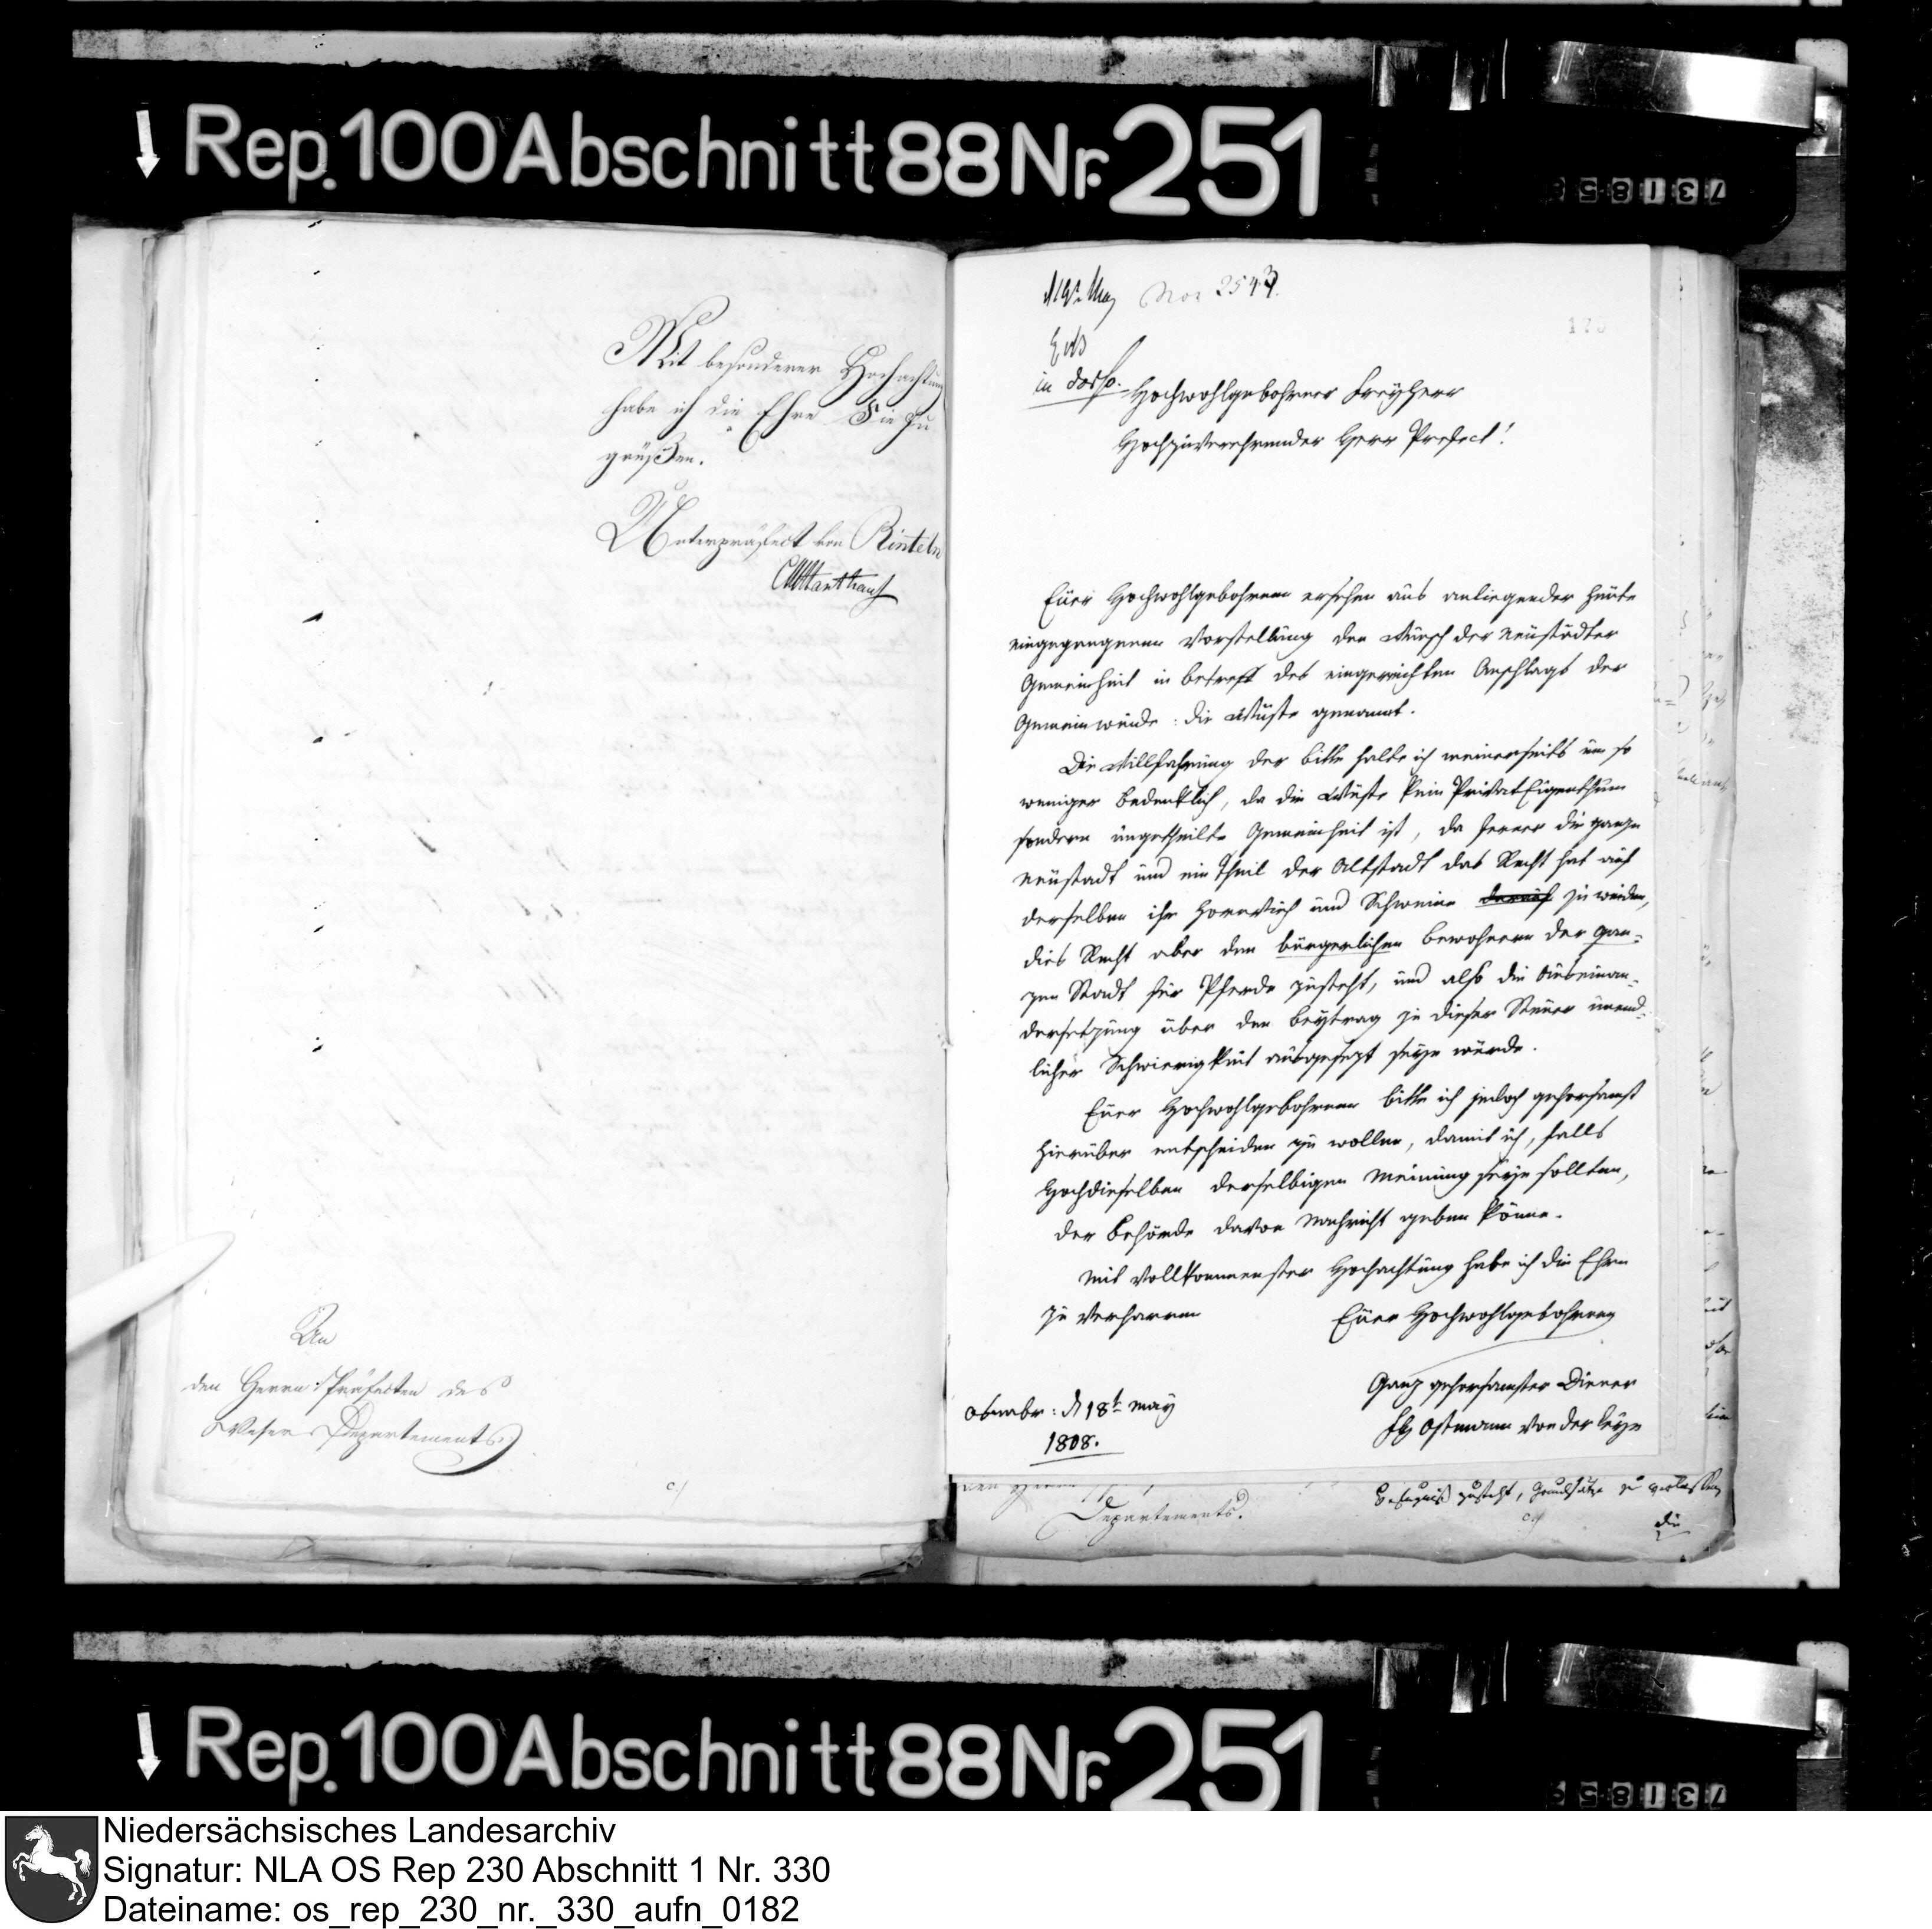 Rep. 100 Abschnitt 88 Nr. 251
Mit besonderer Hochachtung
habe ich die Ehre Sie zu
grüßen.
Unterpräfect von Rinteln
An
den Herrn Präfecten des
Weser Departements
c/
d 19t May Nro 2543
in dorso.
Hochwohlgebohrner Freyherr
Hochzuverehrender Herr Prefect!
Euer Hochwohlgebohrnen ersehen aus anliegender heute
eingegangenen Vorstellung den Wunsch der Neustädter
Gemeinheit in betreff des eingereichten Anschlags der
Gemeinweide: die Wüste genannt.
Die Willfahrung der bitte halte ich meinerseits um so
weniger bedenklich, da die Wüste kein PrivatEigenthum
sondern ungetheilte Gemeinheit ist, da ferner die ganze
Neustadt und ein Theil der Altstadt das Recht hat auf
derselben ihr Hornvieh und Schweine darauf zu weiden,
dies Recht aber den bürgerlichen bewohnern der gan-
zen Stadt für Pferde zusteht, und also die Auseinan-
dersetzung über den beytrag zu dieser Steuer unend-
licher Schwierigkeit ausgesezt seyn würde.
Euer Hochwohlgebohrnen bitte ich jedoch gehorsamst
hierüber entscheiden zu wollen, damit ich, falls
Hochdieselben derselbigen Meinung seyn sollten,
der behörde davon Nachricht geben könne.
Mit vollkommenster Hochachtung habe ich die Ehre
zu verharren
Euer Hochwohlgebohrnen
Ganz gehorsamster Diener
Ostmann von der Leye
Osnabr: d 18t May
1808.
den Herrn
Departements.
Befugniß zusteht, Grundsätze zu
die
Rep. 100 Abschnitt 88 Nr. 251
Niedersächsisches Landesarchiv
Signatur: NLA OS Rep 230 Abschnitt 1 Nr. 330
Dateiname: os_rep_230_nr._330_aufn_0182